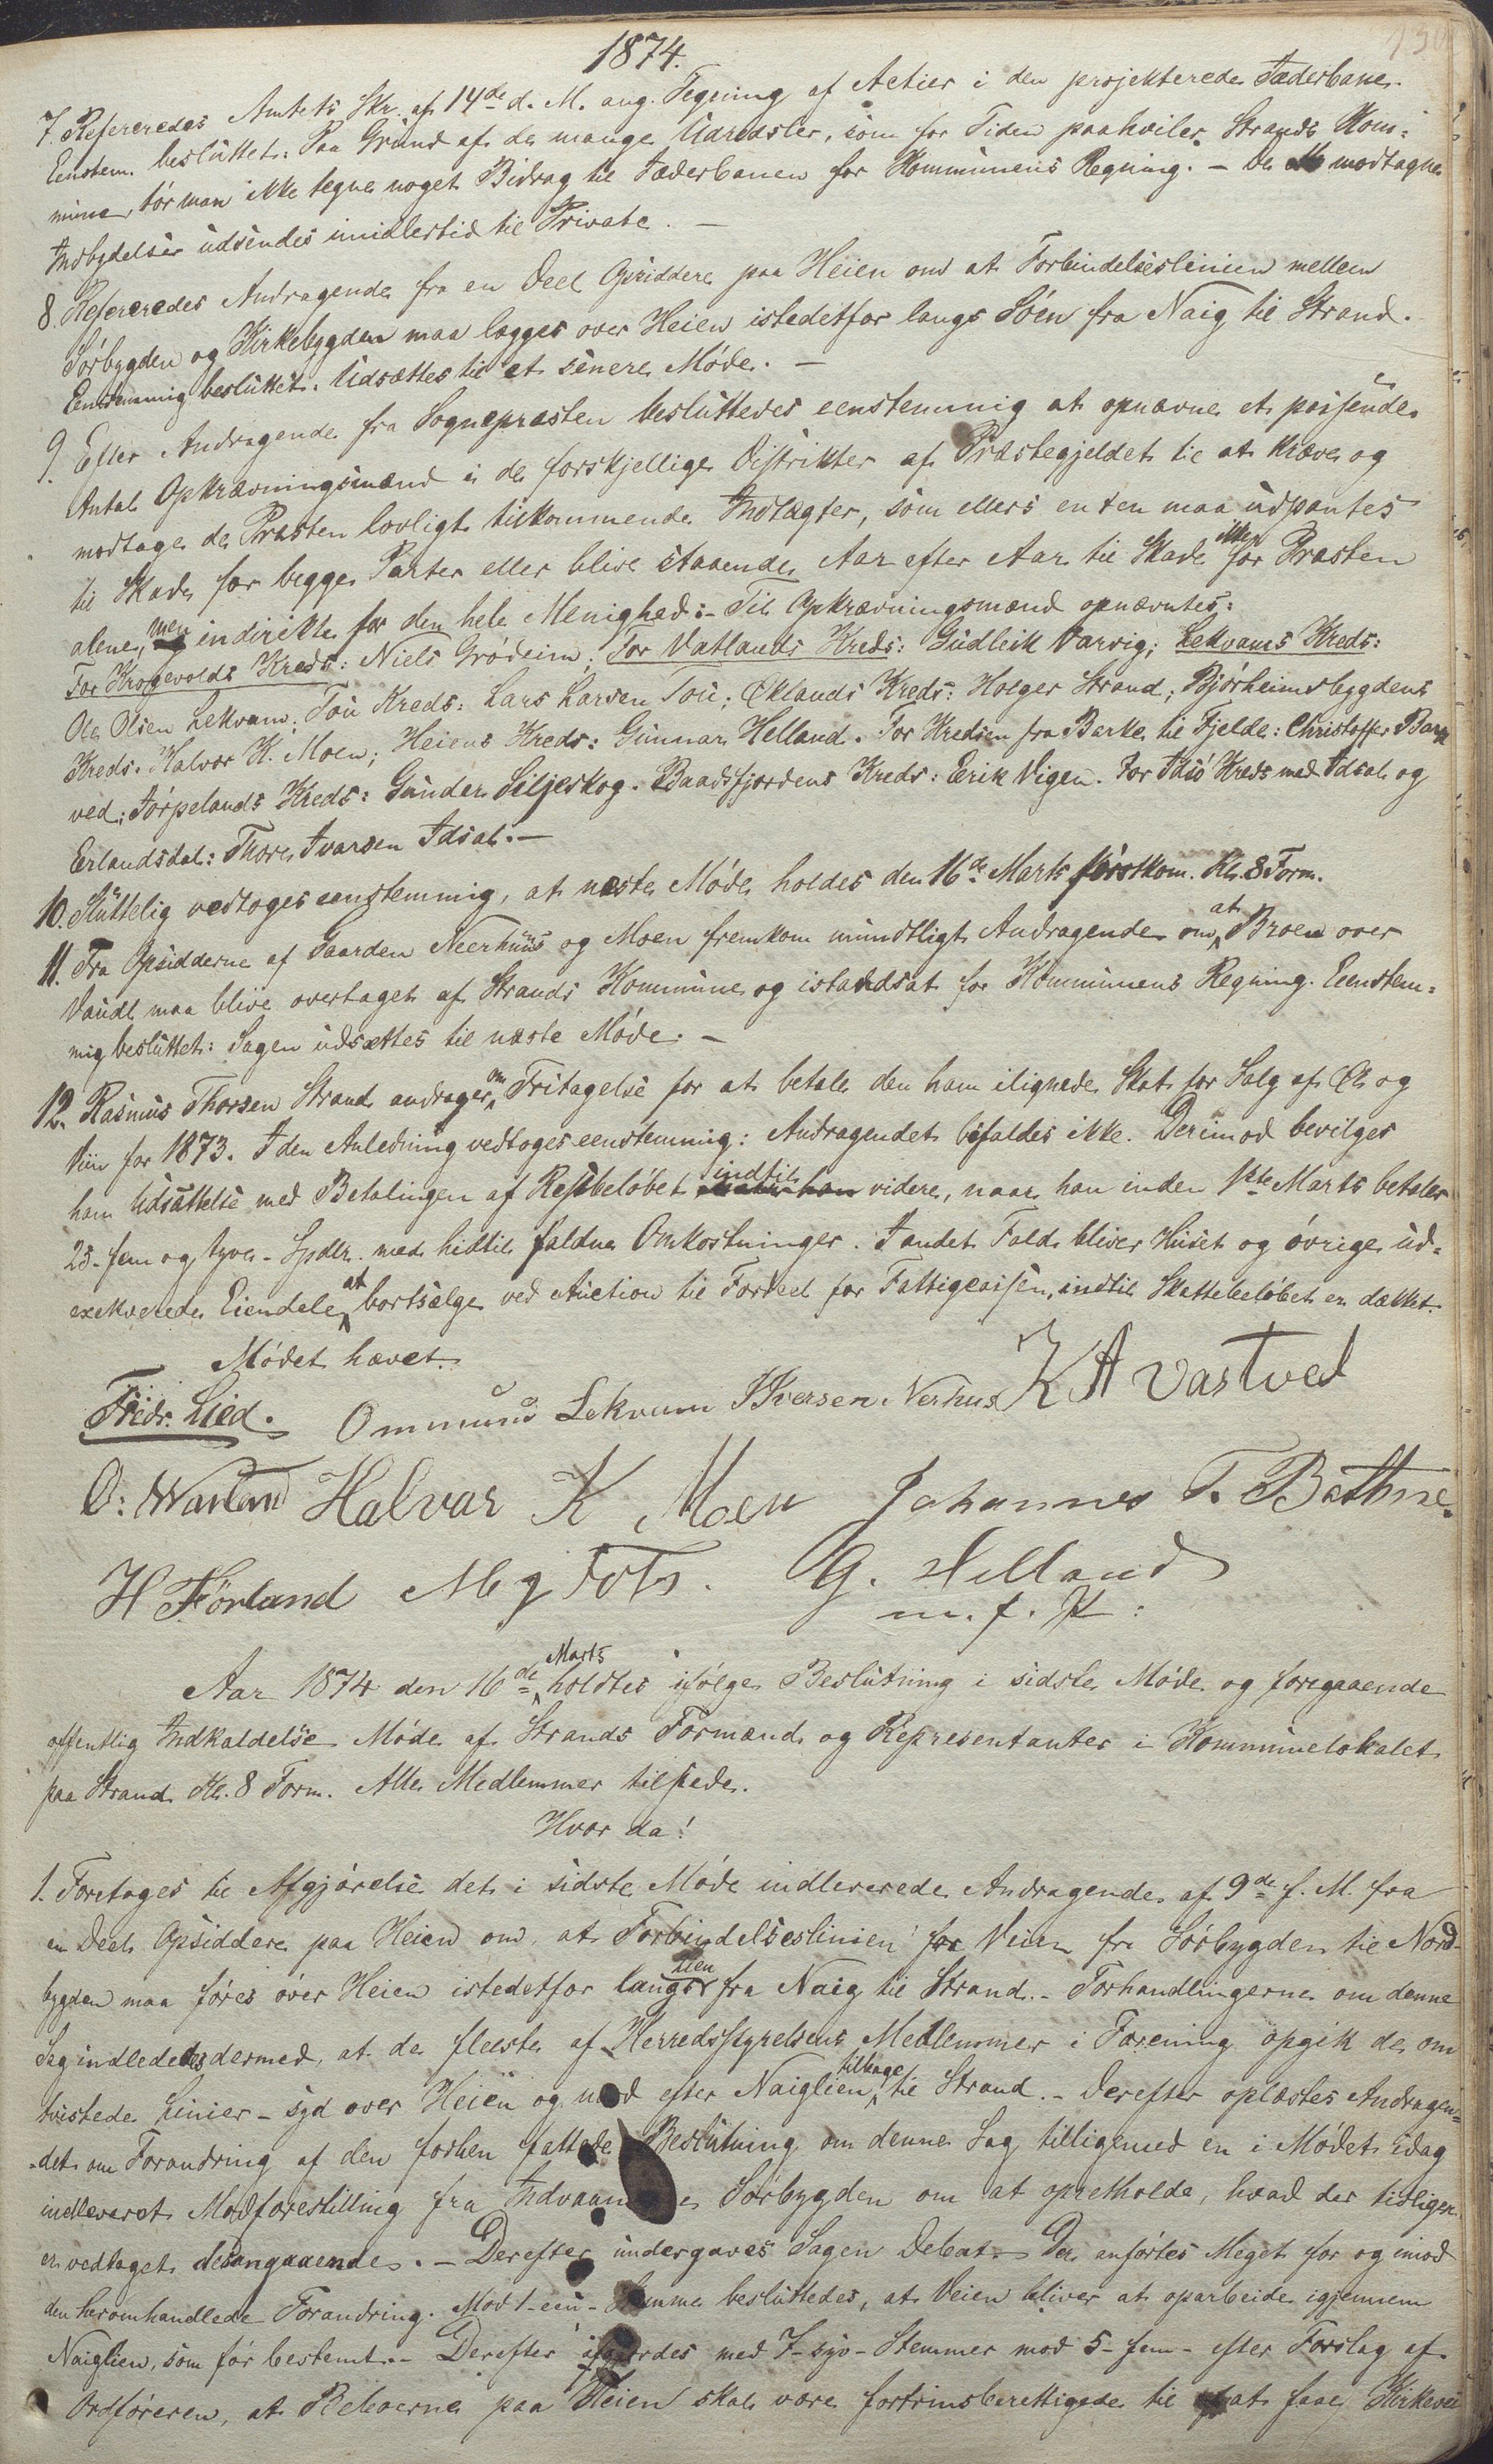 130
1874.
7. Refereredes Amtets Skr. af 14de d. M. ang. Tegning af Actier i den projekterede Jæderbane.
Eenstem. besluttet: Paa Grund af de mange Udredsler, som for Tiden paahviler Strands Kom-
mune, tør man ikke tegne noget Bidrag til Jæderbanen for Kommunens Regning. – De modtagne
Indbydelser udsendes imidlertid til Private. –
8. Refereredes Andragende fra en Deel Opsiddere paa Heien om at Forbindelseslinien mellem
Sörbygden og Kirkebygden maa lægges over Heien istedetfor langs Söen fra Naig til Strand.
Eenstemmig besluttet: Udsættes til et senere Møde. –
9. Efter Andragende fra Sognepræsten besluttedes eenstemmig at opnævne et passende
Antal Opkrævningsmænd i de forskjellige Distrikter af Præstegjeldet til at kræve og
modtage de Præsten lovligt tilkommende Indtægter, som ellers enten maa udpantes
til Skade for begge Parter eller blive staaende Aar efter Aar til Skade ikke for Præsten
alene, men indirekte for den hele Menighed: – Til Opkrævningsmænd opnævntes:
For Krogevolds Kreds: Niels Grödeim; For Vatlands Kreds: Gudleik Varvig; Lekvams Kreds:
Ole Olsen Lekvam; Tou Kreds: Lars Larsen Tou; Øklands Kreds: Holger Strand; Bjørheimsbygdens
Kreds: Halvor K. Moen; Heiens Kreds: Gunnar Helland. For Kredsen fra Barke til Fjelde: Christoffer Barke
ved; Jørpelands Kreds: Gunder Siljeskog. Baadsfjordens Kreds: Erik Vigen. For Idsö Kreds med Idsal og
Erlandsdal: Thore Ivarsen Idsal. –
10. Sluttelig vedtoges eenstemmig, at næste Møde holdes den 16de Marts førstkom. Kl. 8 Form.
11. Fra Opsidderne af Gaarden Neerhuus og Moen fremkom mundtligt Andragende om at Broen over
Vaudl maa blive overtaget af Strands Kommune og istandsat for Kommunens Regning. Eenstem-
mig besluttet: Sagen udsættes til næste Møde. –
12. Rasmus Thorsen Strand andrager om Fritagelse for at betale den ham ilignede Skat for Salg af Øl og
Viin for 1873. I den Anledning vedtoges eenstemmig: Andragendet bifaldes ikke. Derimod bevilges
ham Udsættelse med Betalingen af Restbeløbet indtil videre, naar han inden 1ste Marts betaler
25 - fem og tyve - Spdlr. med hidtil faldne Omkostninger. I andet Fald bliver Huset og øvrige ud-
exekverede Eiendele at bortsælge ved Auction til Fordeel for Fattigcassen, indtil Skattebeløbet er dækket.
Mødet hævet.
Fredr. Lied. Ommund Lekvam I Iversen Nerhus K A Vastved
O: Watland Halvar K Moen Johannes T. Bathne.
H Förland M g Tots. G. Helland
m. f. P:
Aar 1874 den 16de Marts holdtes ifølge Beslutning i sidste Møde og foregaaende
offentlig Indkaldelse Møde af Strands Formænd og Repræsentanter i Kommunelokalet
paa Strand Kl. 8 Form. Alle Medlemmer tilstede.
Hvor da!
1. Foretoges til Afgjørelse det i sidste Møde indleverede Andragende af 9de f. M. fra
en Deel Opsiddere paa Heien om, at Forbindelseslinien for Veien fra Sörbygden til Nord-
bygden maa føres over Heien istedetfor langs Lien fra Naig til Strand. – Forhandlingerne om denne
Sag indlededes dermed, at de fleeste af Herredsstyrelsens Medlemmer i Forening opgik de om
tvistede Linier – syd over Heien og ned efter Naiglien tilbage til Strand. – Derefter oplæstes Andragen-
det om Forandring af den forhen fattede Beslutning om denne Sag tilligemed en i Mødet idag
indleveret Modforestilling fra Indvaanerne Sörbygden om at opretholde, hvad der tidligere
er vedtaget desangaaende. – Derefter undergaves Sagen Debat. – Der anførtes Meget for og imod
den heromhandlede Forandring. Mod 1 - een - Stemme besluttedes, at Veien bliver at oparbeide igjennem
Naiglien, som før bestemt. – Derefter afgjordes med 7 - syv - Stemmer mod 5 - fem - efter Forslag af
Ordføreren, at Beboerne paa Heien skal være fortrinsberettigede til at faae Kirkevei